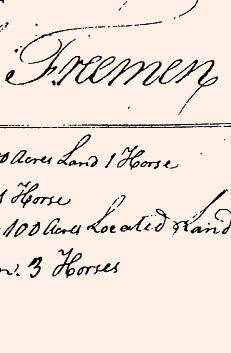 Freemen
0 Acres Land 1 Horse
1 Horse
100 Acres Located Land
3 Horses